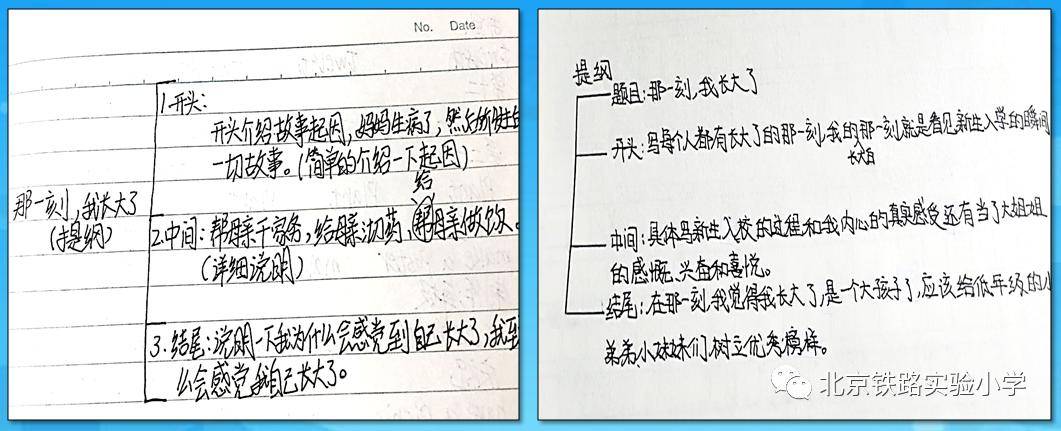 No. Date
1.开头:
开头介绍故事起因,妈妈生病了,然后所发生的
一切故事。(简单的介绍一下起因)
给
那一刻,我长大了
(提纲)
2.中间:帮母亲干家务,给母亲沏药、帮母亲做饭。
(详细说明)
3.结尾:说明一下我为什么会感觉到自己长大了,我
么会感觉我自己长大了。
提纲
题目:那一刻,我长大了
开头:写每个人都有长大了的那一刻,我的那一刻就是看见新生入学的瞬间
长大的
中间:具体写新生入校的过程和我内心的真实感受还有当了大姐姐
的感慨、兴奋和喜悦。
结尾:在那一刻,我觉得我长大了,是一个大孩子了,应该给低年级的小
弟弟、小妹妹们树立优秀榜样。
北京铁路实验小学